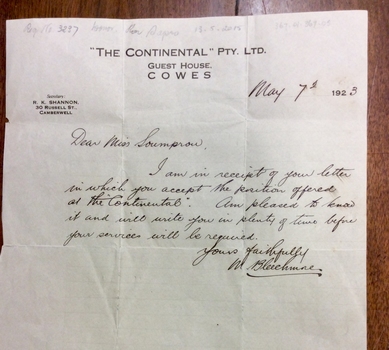 "THE CONTINENTAL" PTY. LTD.
GUEST HOUSE,
COWES
May 7th 1923
Secretary:
R. K. SHANNON,
30 RUSSELL ST.,
CAMBERWELL
Dear Miss
I am in receipt of your letter
in which you accept the position offered
at the "Continental". Am pleased to know
it and will write you in plenty of time before
your services will be required.
Yours faithfully